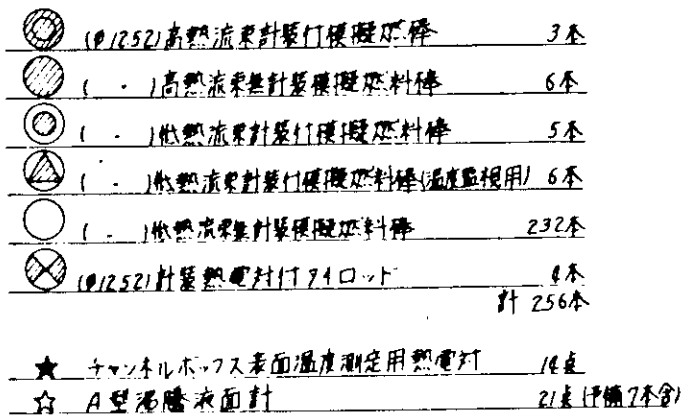 (φ12.52)高熱流束計装付模擬燃棒 3本
( 〃 )高熱流束無計装模擬燃料棒 6本
( 〃 )低熱流束計装付模擬燃料棒 5本
( 〃 )低熱流束計装付模擬燃料棒(温度監視用) 6本
( 〃 )低熱流束無計装模擬燃料棒 232本
(φ12.52)計装熱電対付タイロッド 4本
計 256本
★ チャンネルボックス表面温度測定用熱電対 14点
☆ A型沸騰液面計 21点(予備7本含)